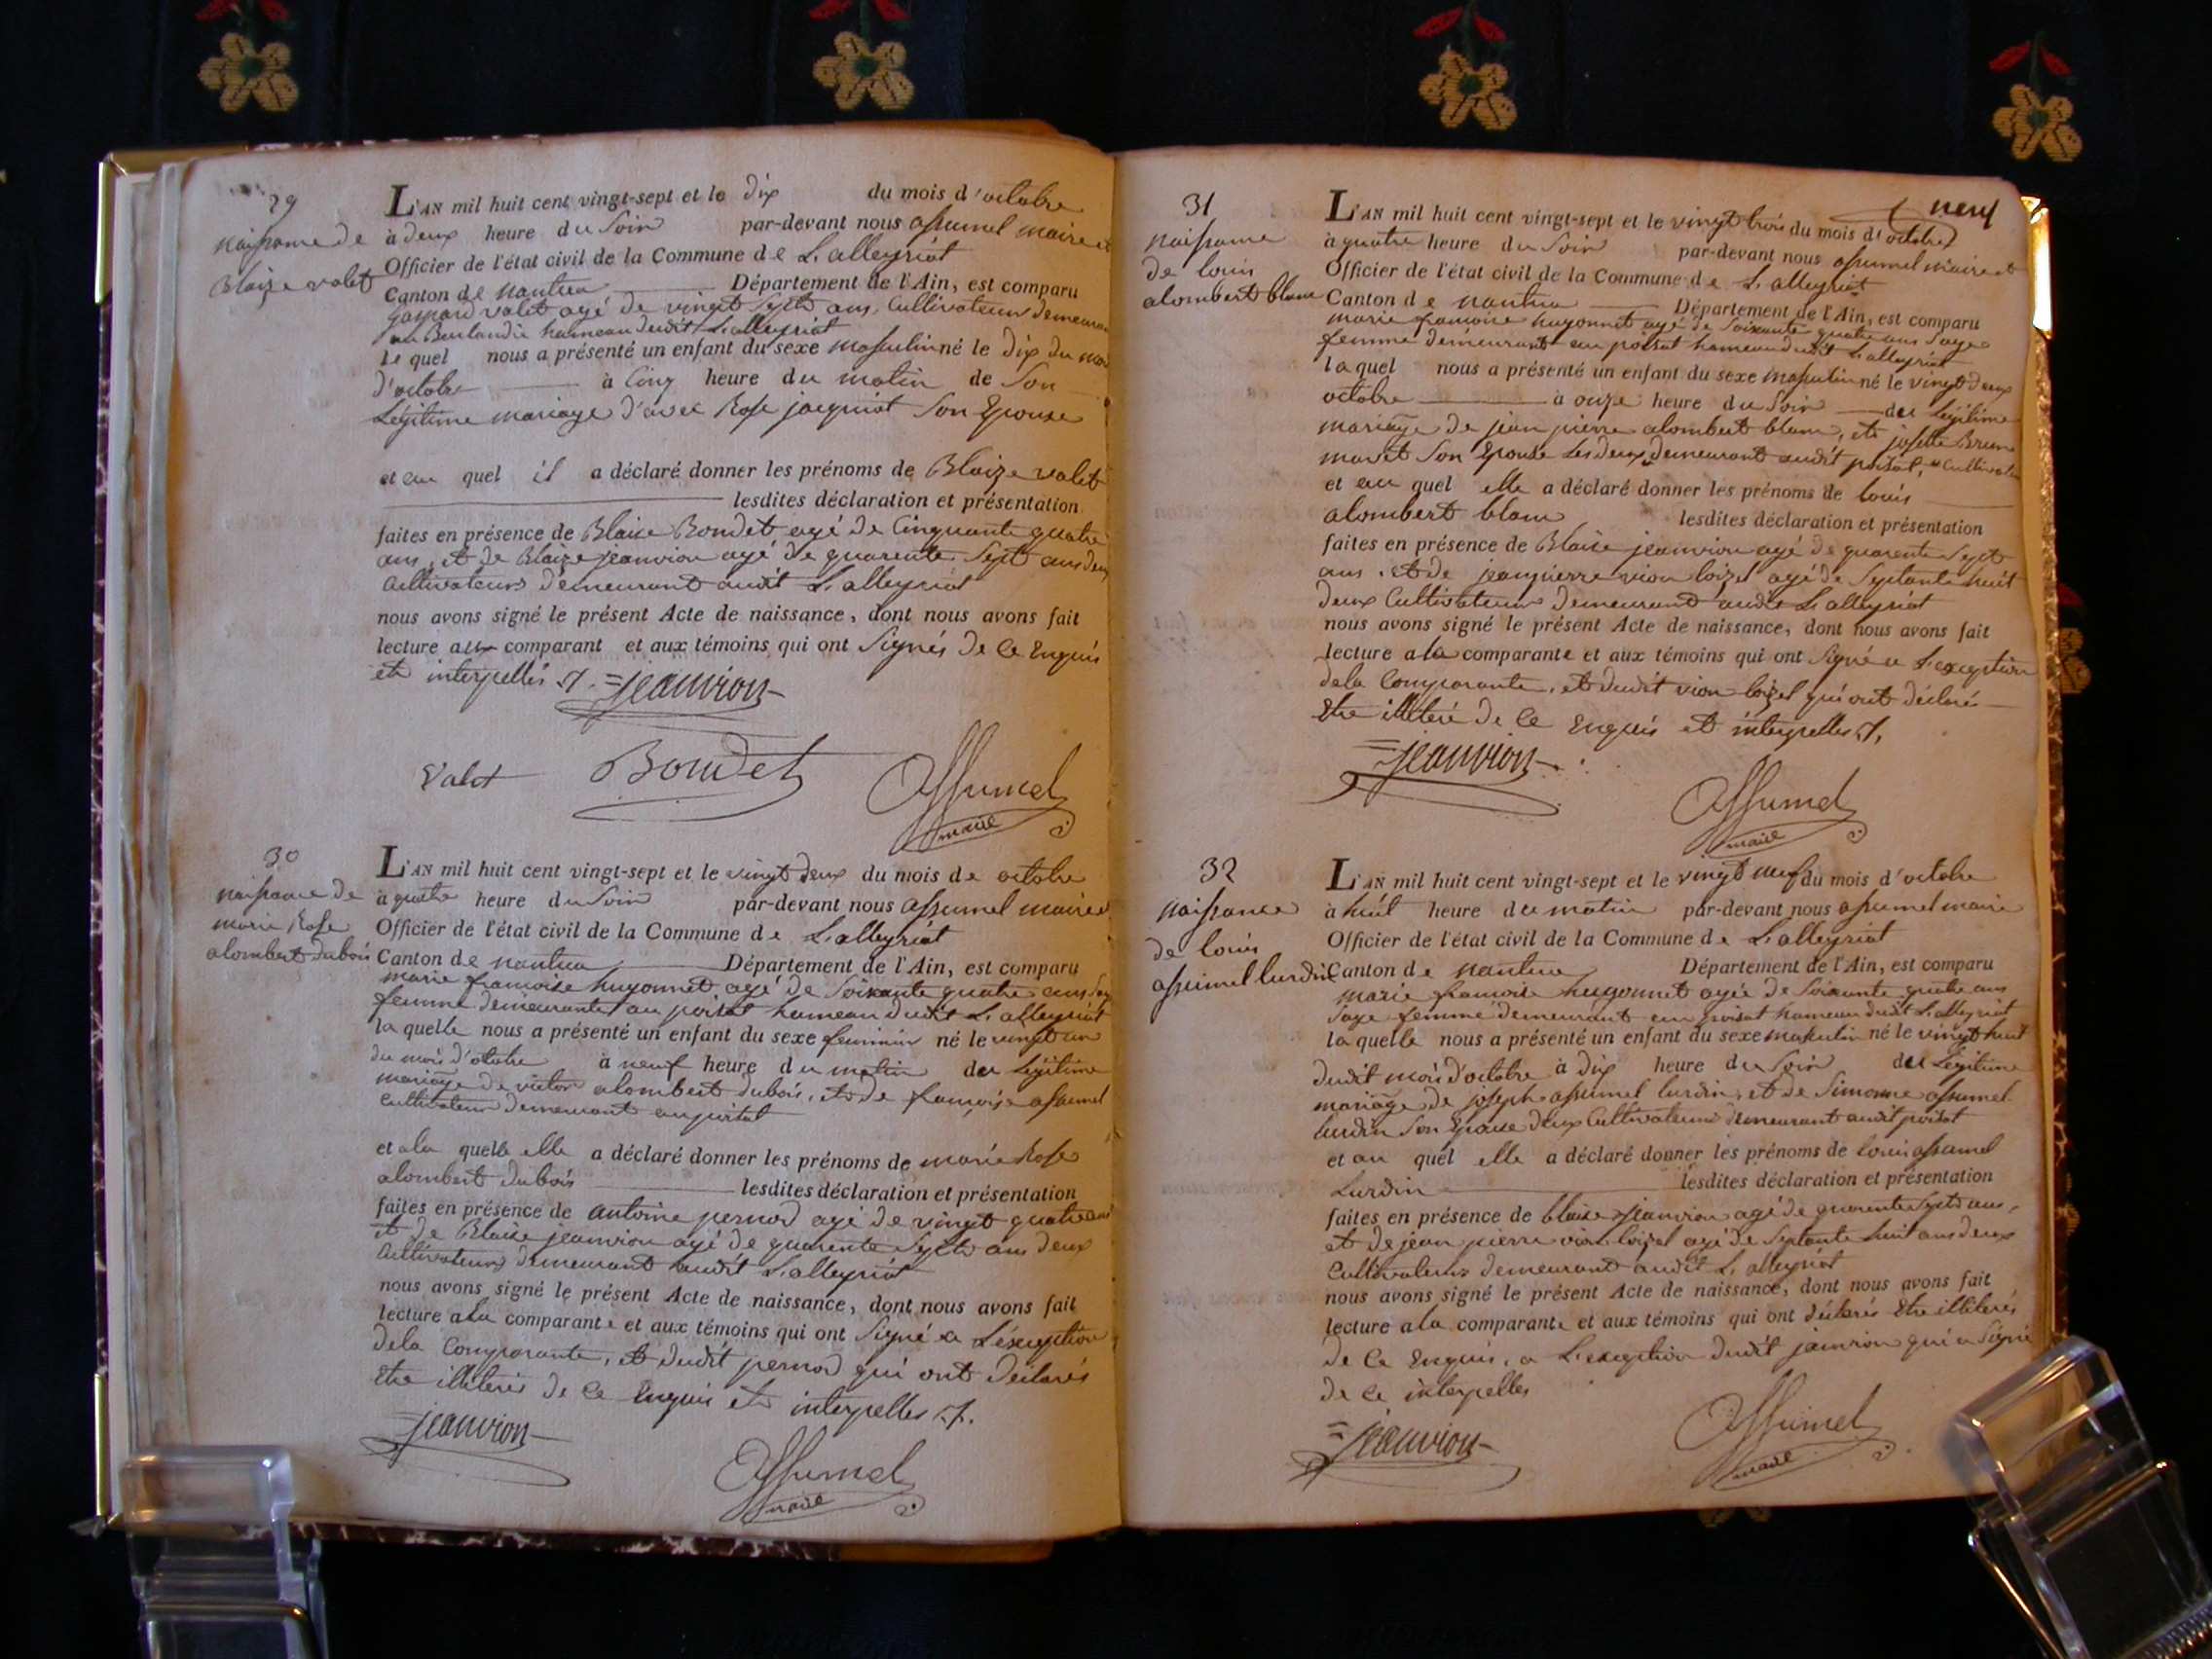 29
naissance de
Blaize valet
L'AN mil huit cent vingt-sept et le dix du mois d'octobre
à deux heure du Soir par-devant nous assumel maire et
Officier de l'état civil de la Commune de L'alleyriat
Canton de nantua Département de l'Ain, est comparu
gaspard valet agé de vingt Sept ans, Cultivateur demeurant
hameau dudit L'alleyriat
Le quel nous a présenté un enfant du sexe masculin né le dix du mois
d'octobre à Cinq heure du matin de Son
Légitime mariage d'avec Rose jacquiot Son Epouse
et au quel il a déclaré donner les prénoms de Blaize valet
lesdites déclaration et présentation
faites en présence de Blaise Boudet agé de Cinquante quatre
ans, et de Blaize jeanvion agé de quarente Sept ans deux
Cultivateurs demeurant audit L'alleyriat
nous avons signé le présent Acte de naissance, dont nous avons fait
lecture au comparant et aux témoins qui ont Signés de Ce Enquis
et interpellés ./. =jeanvion
Valet Boudet Assumel
maire
30
naissance de
marie Rose
alombert dubois
L'AN mil huit cent vingt-sept et le vingt deux du mois de octobre
à quatre heure du Soir par-devant nous assumel maire et
Officier de l'état civil de la Commune de L'alleyriat
Canton de nantua Département de l'Ain, est comparu
marie francoise hugonnet agé de Soixante quatre ans Sage
femme demeurante au poizat hameau dudit L'alleyriat
la quelle nous a présenté un enfant du sexe feminin né le vingt un
du mois d'octobre à neuf heure du matin du Légitime
mariage de victor alombert dubois, et de francoise assumel
Cultivateur demeurant au poizat
et a la quelle elle a déclaré donner les prénoms de marie Rose
alombert dubois lesdites déclaration et présentation
faites en présence de antoine pernod agé de vingt quatre ans
et de Blaise jeanvion agé de quarente Sept ans deux
Cultivateurs demeurant audit L'alleyriat
nous avons signé le présent Acte de naissance, dont nous avons fait
lecture a la comparante et aux témoins qui ont Signé a L'exception
de la Comparante, et dudit pernod qui ont déclarés
Etre illiterés de Ce Enquis et interpelles ./.
=jeanvion
Assumel
maire
neuf
31
naissance
de louis
alombert blanc
L'AN mil huit cent vingt-sept et le vingt trois du mois d'octobre
à quatre heure du Soir par-devant nous assumel maire et
Officier de l'état civil de la Commune de L'alleyriat
Canton de nantua Département de l'Ain, est comparu
marie francoise hugonnet agé de Soixante quatre ans Sage
femme demeurant au poizat hameau dudit L'alleyriat
la quel nous a présenté un enfant du sexe masculin né le vingt deux
octobre à onze heure du Soir du Légitime
mariage de jean pierre alombert blanc, et josette Brun
Son Epouse Les deux demeurant audit poizat,
et au quel elle a déclaré donner les prénoms de louis
alombert blanc lesdites déclaration et présentation
faites en présence de Blaise jeanvion agé de quarente Sept
ans, et de jean pierre vion loizel agé de Septante huit
deux Cultivateurs demeurant audit L'alleyriat
nous avons signé le présent Acte de naissance, dont nous avons fait
lecture a la comparante et aux témoins qui ont Signé a L'exception
de la Comparante, et dudit vion loizel qui ont déclaré
Etre illiteré de Ce Enquis et interpelles ./.
=jeanvion
Assumel
maire
32
naissance
de louis
assumel lurdin
L'AN mil huit cent vingt-sept et le vingt neuf du mois d'octobre
à huit heure du matin par-devant nous assumel maire
Officier de l'état civil de la Commune de L'alleyriat
Canton de nantua Département de l'Ain, est comparu
marie francoise hugonnet agée de Soixante quatre ans
Sage femme demeurant au poizat hameau dudit L'alleyriat
la quelle nous a présenté un enfant du sexe masculin né le vingt huit
dudit mois d'octobre à dix heure du Soir du Légitime
mariage de joseph assumel lurdin, et de Simonne assumel
lurdin Son Epouse deux Cultivateurs demeurant audit poizat
et au quel elle a déclaré donner les prénoms de louis assumel
Lurdin lesdites déclaration et présentation
faites en présence de blaise jeanvion agé de quarente Sept ans,
et de jean pierre vion loizel agé de Septante huit ans deux
Cultivateurs demeurant audit L'alleyriat
nous avons signé le présent Acte de naissance, dont nous avons fait
lecture a la comparante et aux témoins qui ont déclarés Etre illiterés
de Ce Enquis, a L'exception dudit jeanvion qui a Signé
de Ce interpelles
=jeanvion
Assumel
maire